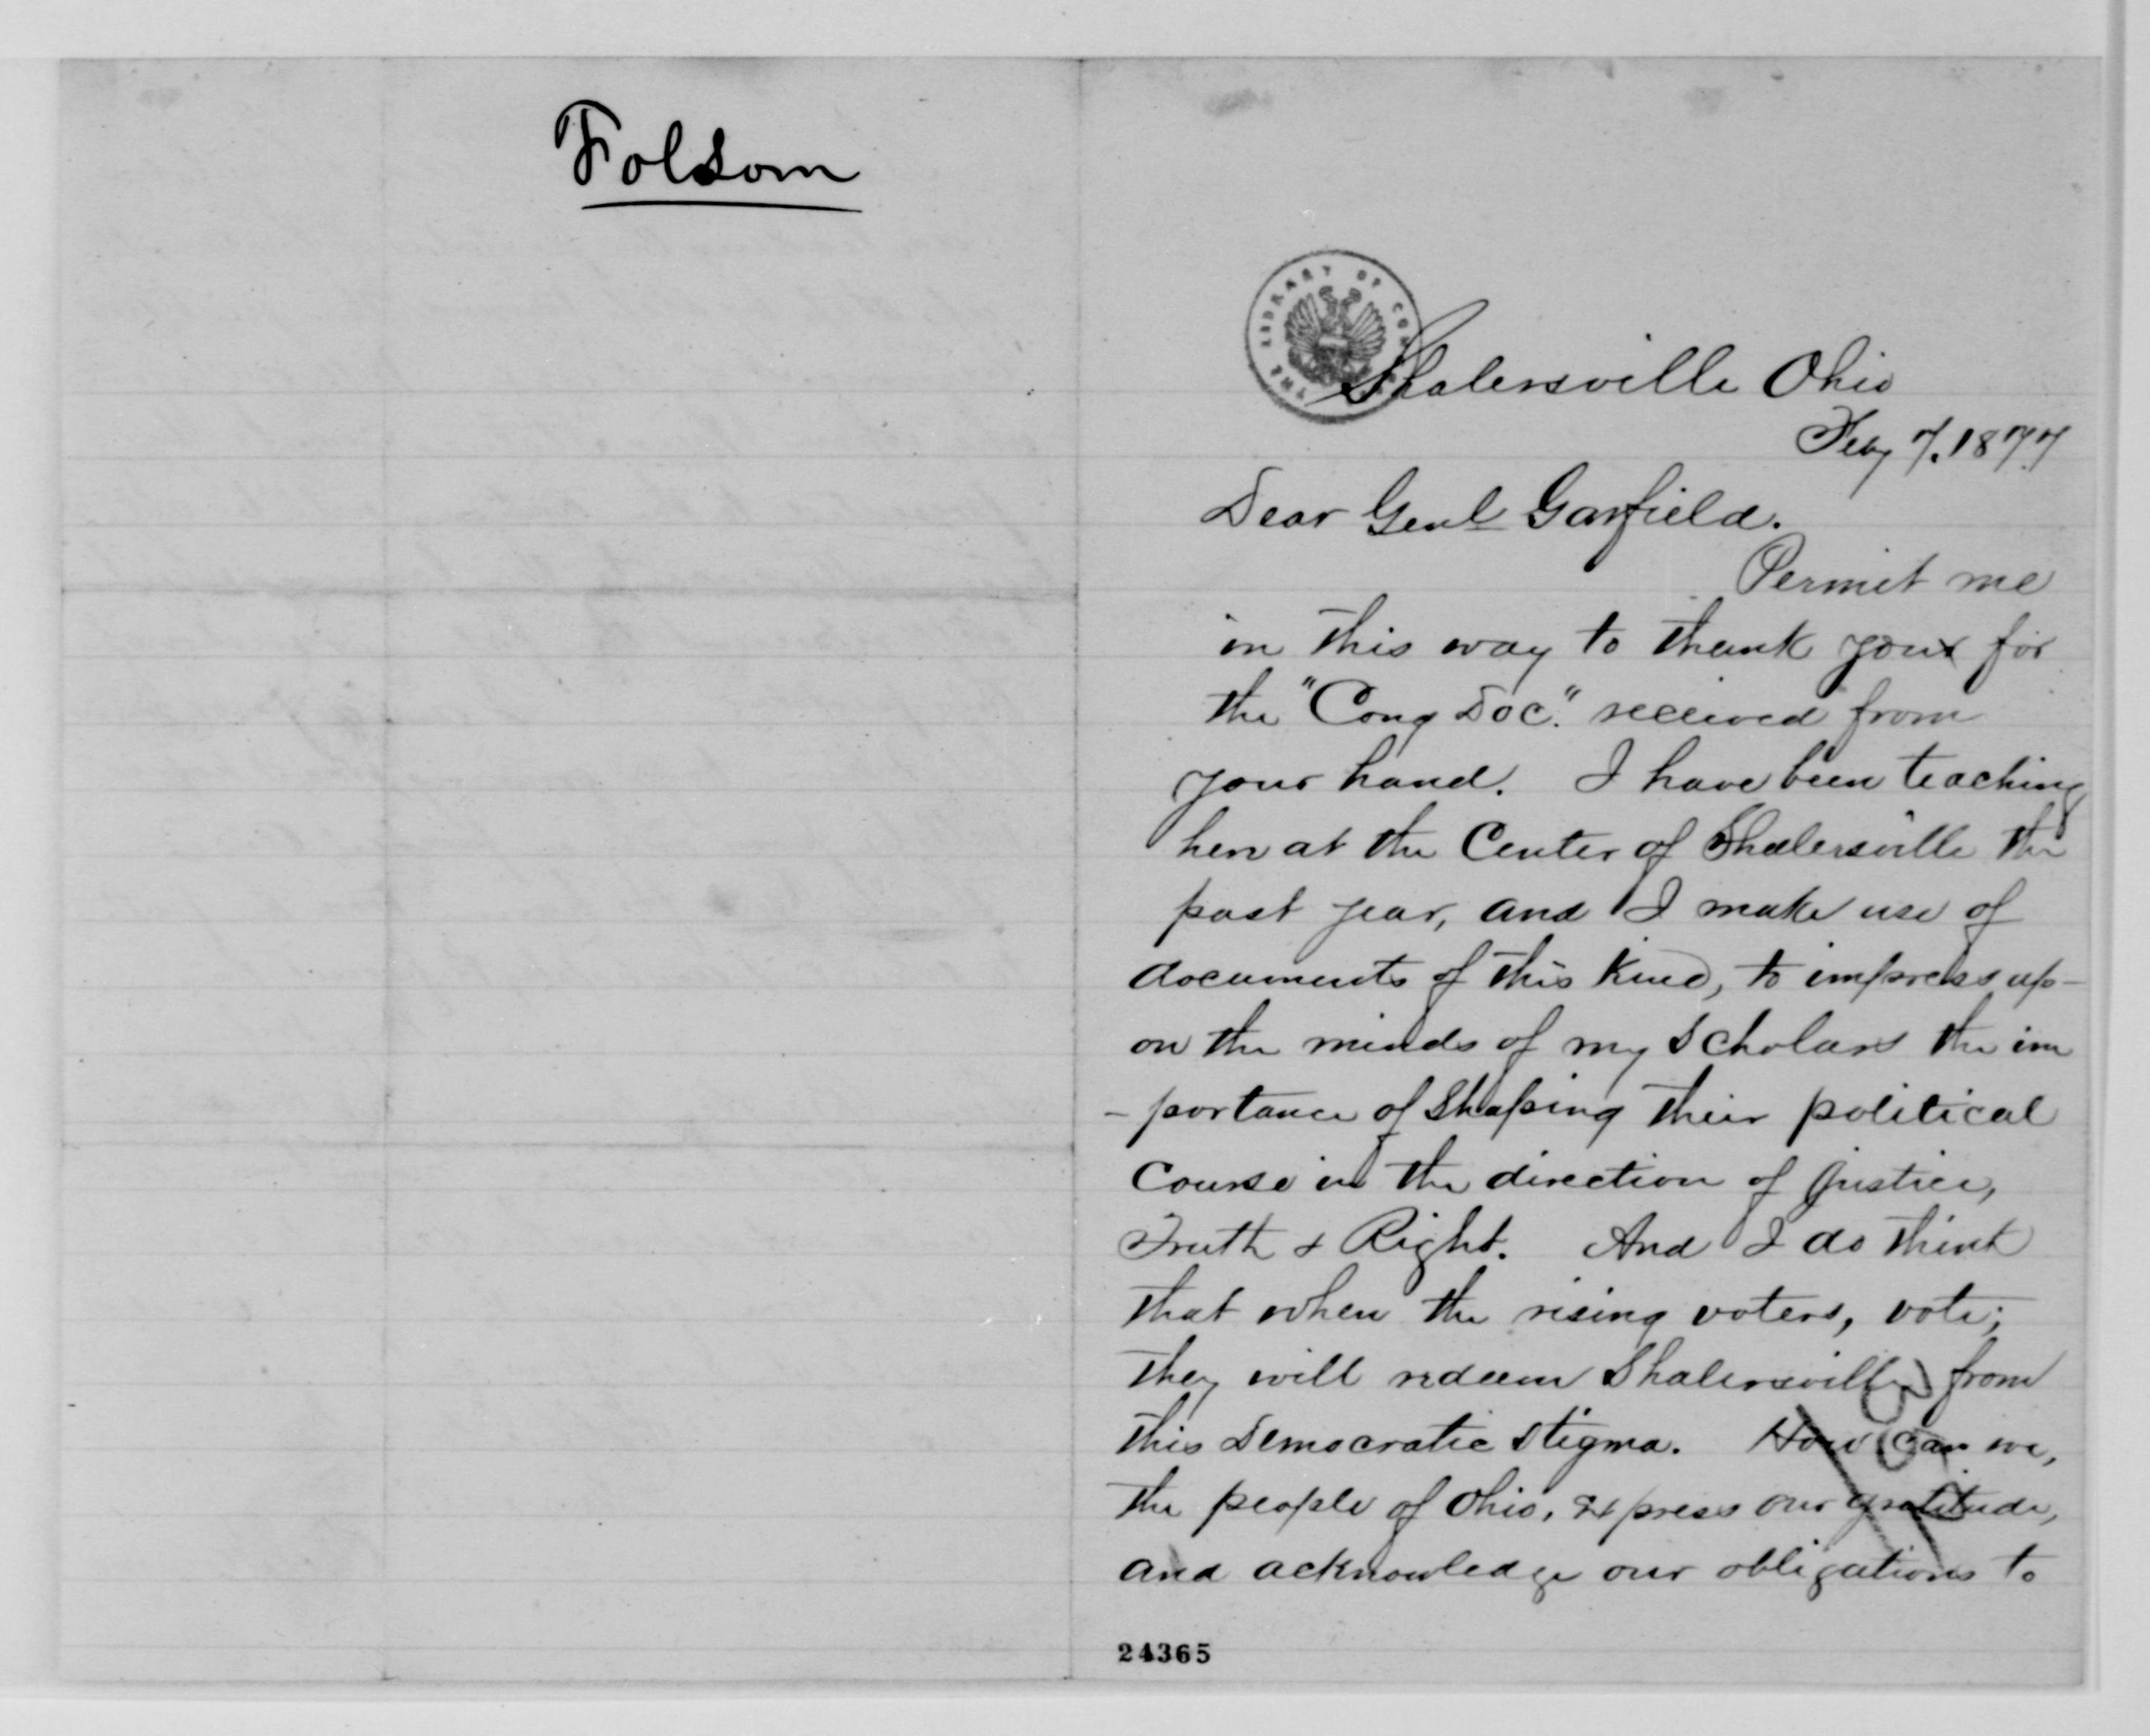 Folsom
THE LIBRARY OF CON
Shalersville Ohio
Feby 7. 1877
Dear Genl Garfield.
Permit me
in this way to thank you for
the "Cong Doc." received from
your hand. I have been teaching
here at the Center of Shalersville the
past year, and I make use of
documents of this kind, to impress up-
on the minds of my Scholars the im
- portance of Shaping their political
Course in the direction of Justice,
Truth & Right. And I do think
that when the rising voters, vote;
they will redeem Shalersville from
this Democratic Stigma. How can we,
the people of Ohio, express our gratitude,
and acknowledge our obligations to
24365